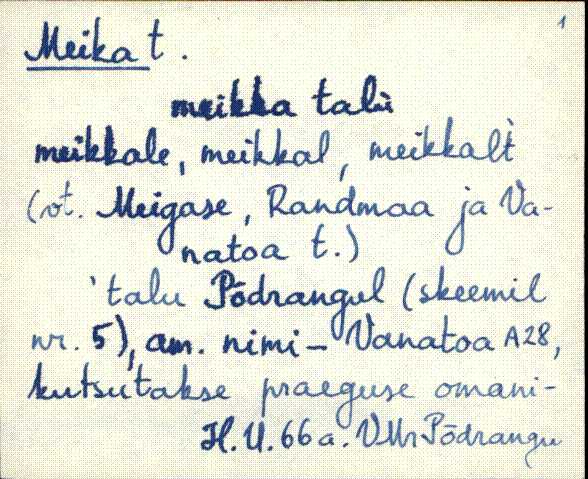 1
Meika t.
meikka talu
meikkale, meikkal, meikkalt
(vt. Meigase, Randmaa ja Va-
natoa t.)
'talu Põdrangul (skeemil
nr. 5), am. nimi – Vanatoa A28,
kutsutakse praeguse omani-
H.U. 66 a. VMr Põdrangu